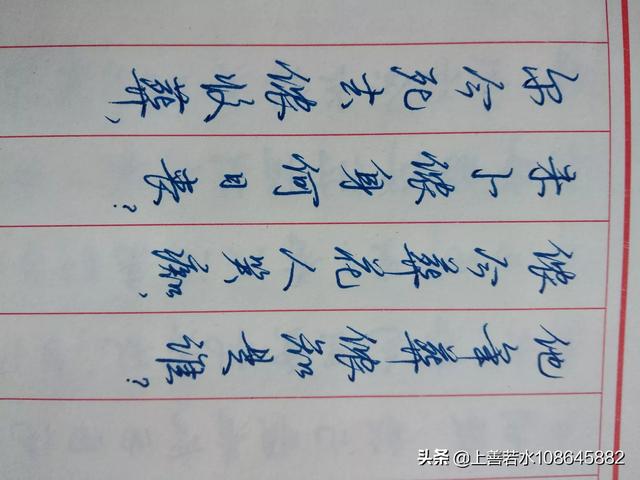 尔今死去侬收葬,
未卜侬身何日丧?
侬今葬花人笑痴,
他年葬侬知是谁?
头条 @上善若水108645882